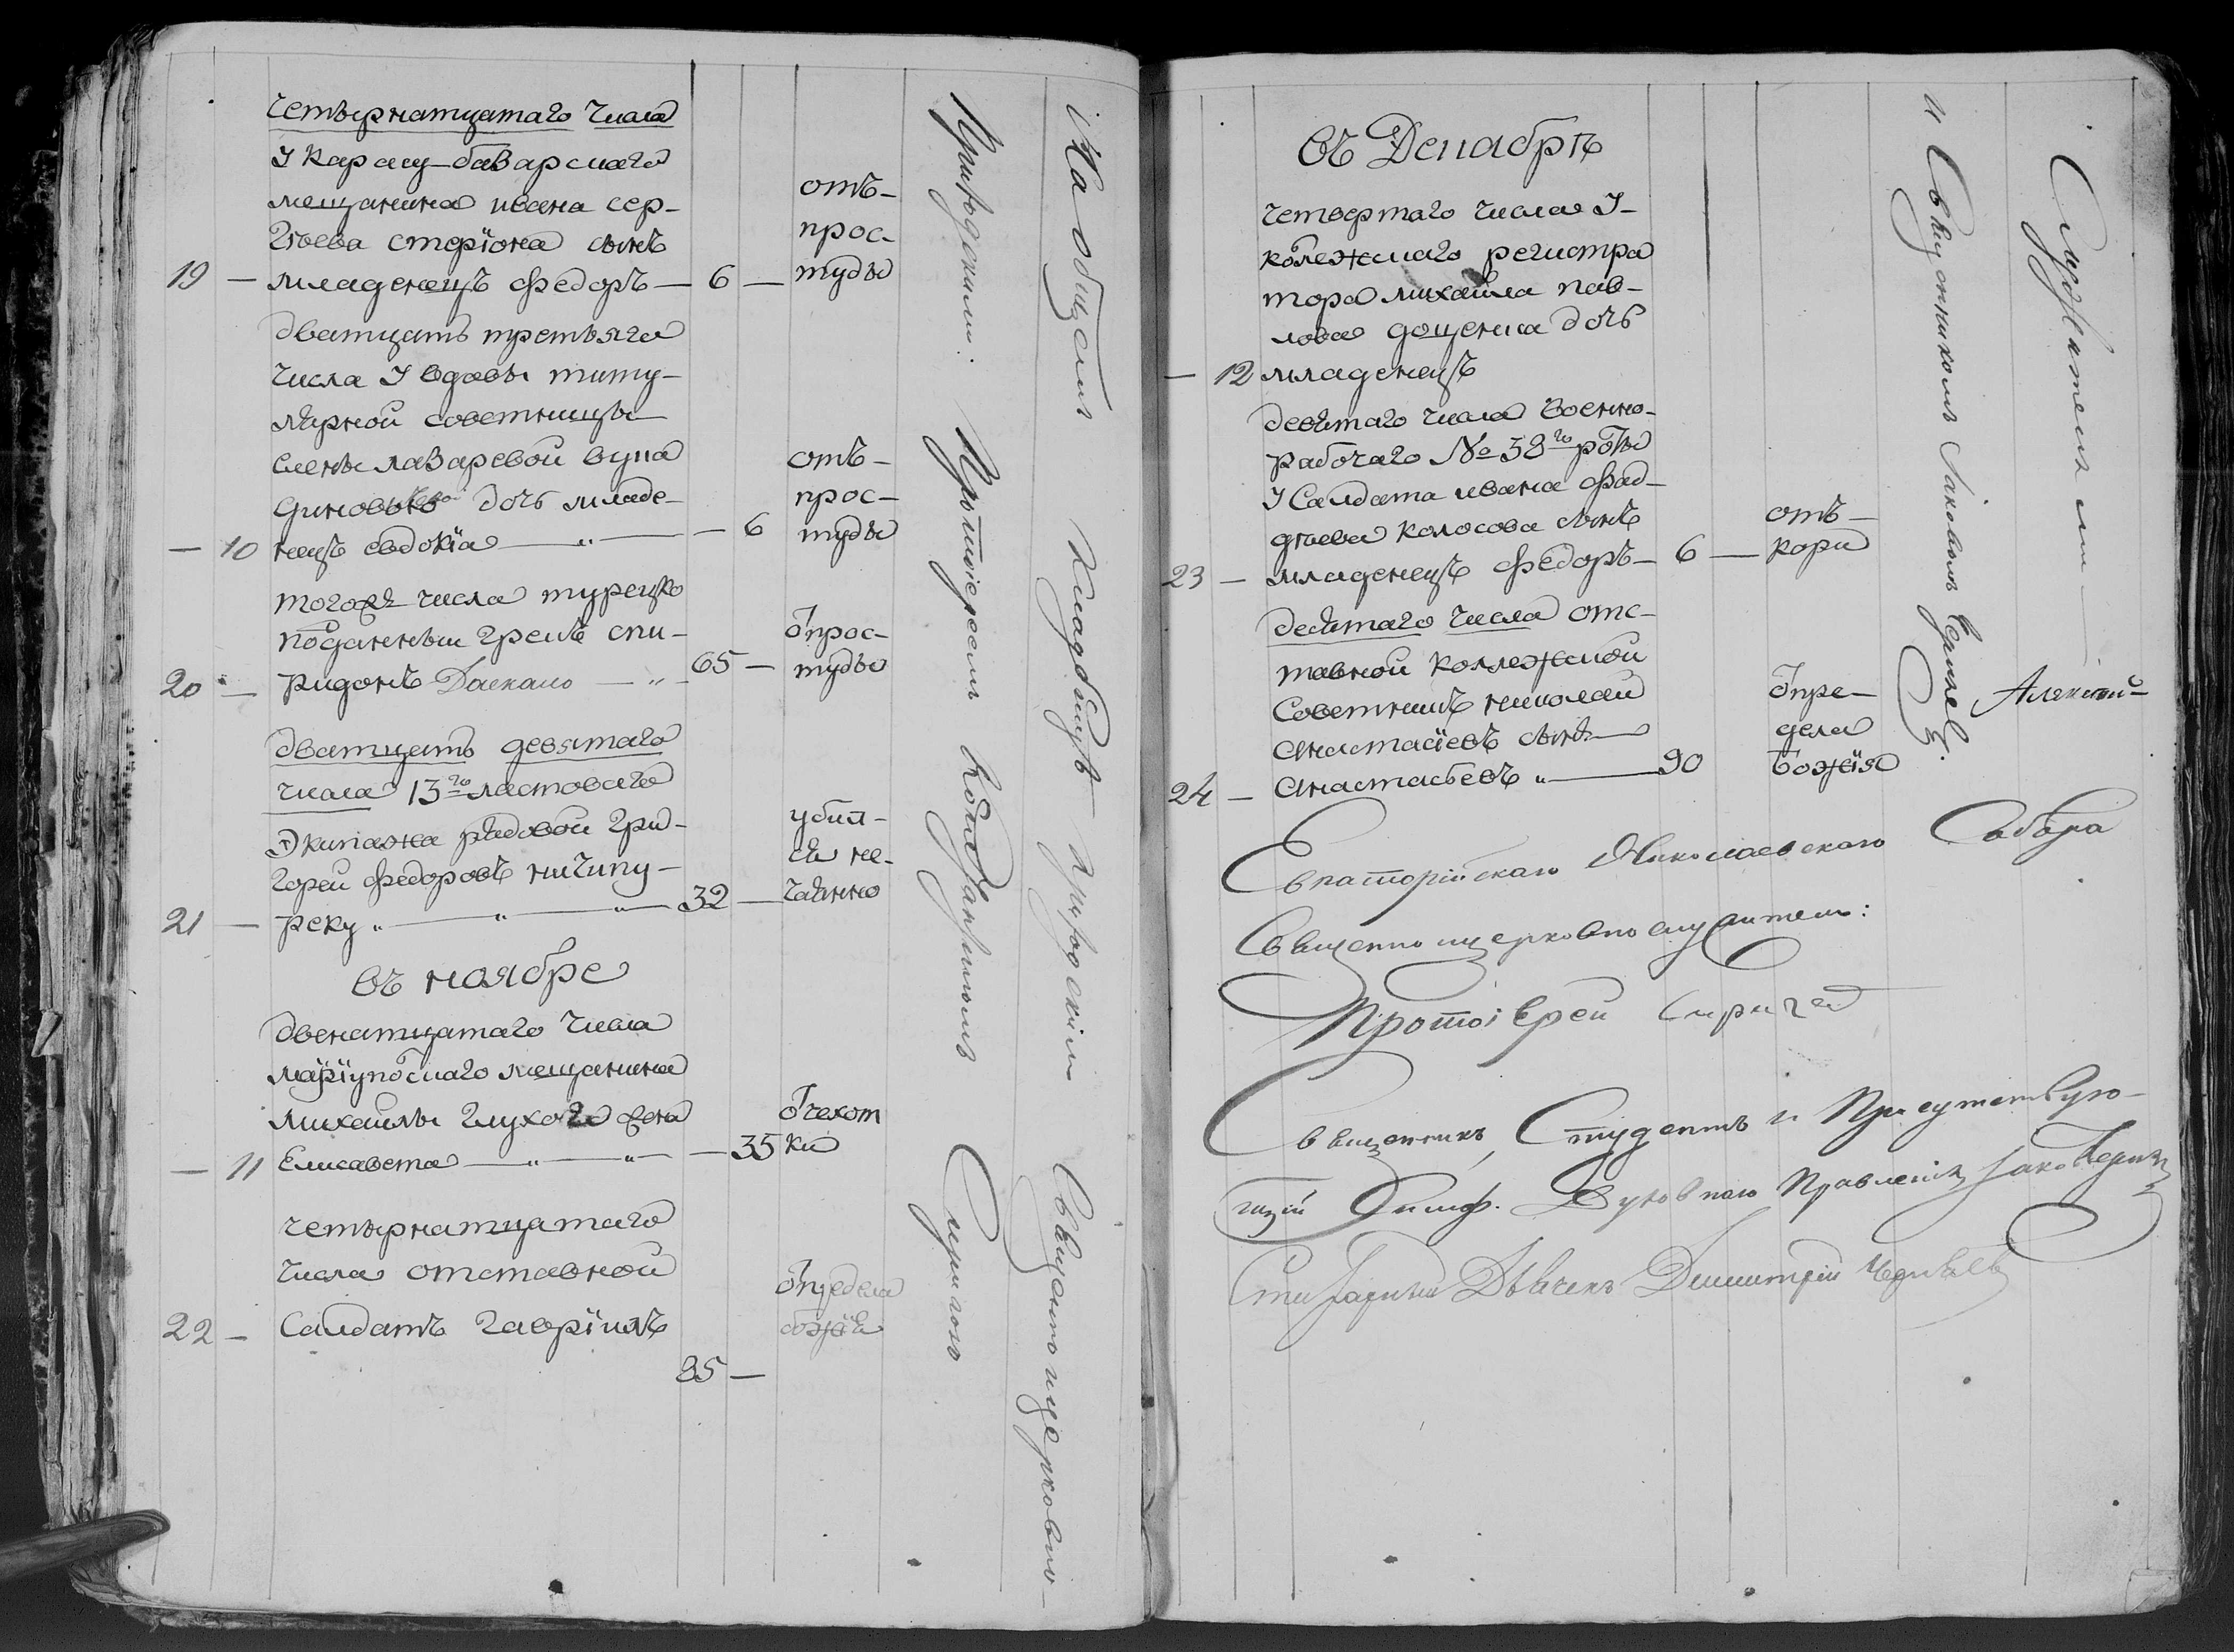 четырнатцатаго числа
У Карасу-базарскаго
мещанина ивана сер-
гѣева стерїона сынъ
19 — младенецъ федоръ — 6 —
отъ-
прос-
туды
дватцать третьяго
числа У вдовы титу-
лярной советницы
елены лазаревой
дочь младе-
— 10 нецъ евдокїа — „ — — 6
отъ-
прос-
туды
тогожъ числа турецко
подданныи грекъ спи-
20 — ридонъ — „ — 65 —
отпрос-
туды
дватцать девятаго
числа 13го ластоваго
Экипажа рядовои гри-
горей федоровъ ничипу-
21 — реку „ — „ — „ — 32 —
убил-
ся не-
чаянно
въ ноябре
двенатцатаго числа
марїупольскаго мещанина
михаилы глухого жена
— 11 Елисавета — „ — „ — — 35
отчехот
ки
четырнатцатаго
числа отставной
22 — Салдатъ гаврїилъ
85 —
отпредела
божїя
Приходскими: Протоіереемъ Кондратомъ Сиригою
На общемъ кладбищѣ приходскiм Священно и церковно-
въ Декабрѣ
четвертаго числа У-
колежскаго регистра
тора михайла пав-
лова доценка дочь
— 12 младенецъ
девятаго числа Военно-
рабочаго № 38го роты
У Салдата ивана фад-
дѣева колосова сынъ
23 — младенецъ федоръ — 6 —
отъ-
кори
десятаго числа отс-
тавной коллежской
Советникъ николай
анастасїевъ сынъ
24 — Анастасьевъ „ — 90
отпре-
дела
божїя
и Священникомъ Іаковомъ
Служителями —
Алексей
Евпаторійскаго Николаевскаго Собора
Священно и церковно служители:
Протоіерей Сирига
Священникъ, Студентъ и Присутствую-
щій Симф. Духовнаго Правленія Іаковъ
Стихарный Дьячекъ Димитрій